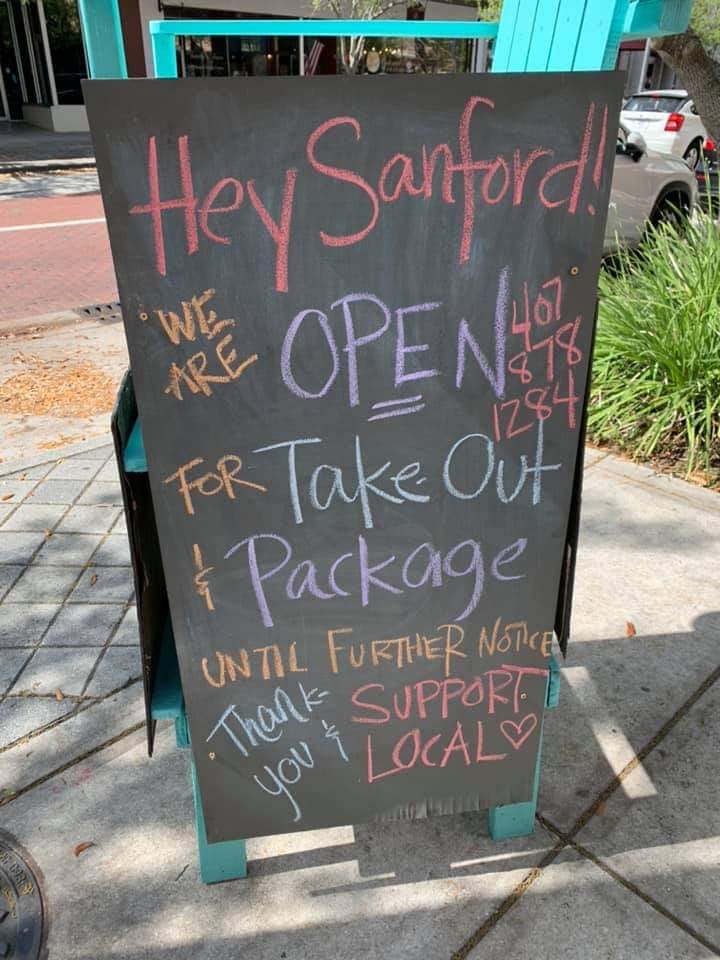 Hey Sanford!
WE ARE OPEN
407
878
1284
FOR Take Out
& Package
UNTIL FURTHER NOTICE
Thank you &
SUPPORT LOCAL